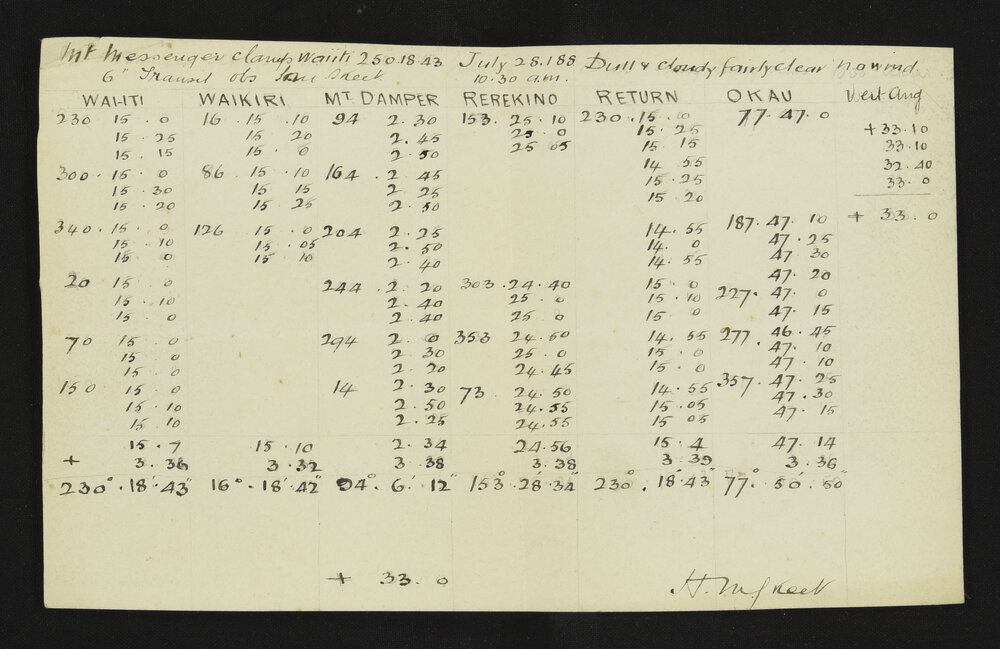 Mt Messenger clamp Waiiti 250.18.43 July 28.188 Dull & cloudy fairly clear no wind
6" Transit obs Skeet 10.30 a.m.
WAI-ITI WAIKIRI MT. DAMPER REREKINO RETURN OKAU Vert Ang
230 15 . 0 16 . 15 . 10 94 2 . 30 153 . 25 . 10 230 . 15 . 0 77 . 47 . 0
15 . 25 15 . 20 2 . 45 25 . 0 15 . 25 + 33 . 10
15 . 15 15 . 0 2 . 50 25 . 05 15 . 15 33 . 10
300 . 15 . 0 86 . 15 . 10 164 . 2 . 45 14 . 55 32 . 40
15 . 30 15 . 15 2 . 25 15 . 25 33 . 0
15 . 20 15 . 25 2 . 50 15 . 20
340 . 15 . 0 126 15 . 0 204 2 . 25 14 . 55 187 . 47 . 10 + 33 . 0
15 . 10 15 . 05 2 . 50 14 . 0 47 . 25
15 . 0 15 . 10 2 . 40 14 . 55 47 30
20 15 . 0 244 . 2 . 20 303 . 24 . 40 15 . 0 47 . 20
15 . 10 2 . 40 25 . 0 15 . 10 227 . 47 . 0
15 . 0 2 . 40 25 . 0 15 . 0 47 . 15
70 15 . 0 294 2 . 0 353 24 . 50 14 . 55 277 46 . 45
15 . 0 2 . 30 25 . 0 15 . 0 47 . 10
15 . 0 2 . 20 24 . 45 15 . 0 47 . 10
150 15 . 0 14 2 . 30 73 . 24 . 50 14 . 55 357 . 47 . 25
15 . 10 2 . 50 24 . 55 15 . 05 47 . 30
15 . 10 2 . 25 24 . 55 15 . 05 47 . 15
15 . 7 15 . 10 2 . 34 24 . 56 15 . 4 47 . 14
+ 3 . 36 3 . 32 3 . 38 3 . 38 3 . 39 3 . 36
230° . 18' . 43" 16° . 18' . 42" 94° . 6' . 12" 153° . 28' . 34" 230° . 18' . 43" 77° . 50' . 50"
+ 33 . 0
H. M. Skeet